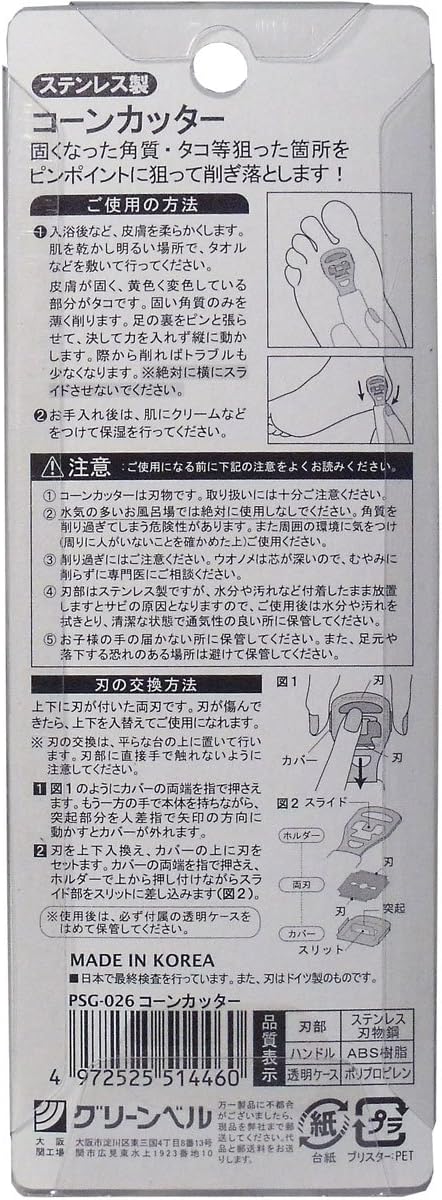 ステンレス製
コーンカッター
固くなった角質・タコ等狙った箇所を
ピンポイントに狙って削ぎ落とします！
ご使用の方法
❶入浴後など、皮膚を柔らかくします。
肌を乾かし明るい場所で、タオル
などを敷いて行ってください。
皮膚が固く、黄色く変色している
部分がタコです。固い角質のみを
薄く削ります。足の裏をピンと張ら
せて、決して力を入れず縦に動か
します。際から削ればトラブルも
少なくなります。※絶対に横にスラ
イドさせないでください。
❷お手入れ後は、肌にクリームなど
をつけて保湿を行ってください。
注意：ご使用になる前に下記の注意をよくお読みください。
①コーンカッターは刃物です。取り扱いには十分ご注意ください。
②水気の多いお風呂場では絶対に使用しなしでください。角質を
削り過ぎてしまう危険性があります。また周囲の環境に気をつけ
(周りに人がいないことを確かめた上)ご使用ください。
③削り過ぎにはご注意ください。ウオノメは芯が深いので、むやみに
削らずに専門医にご相談ください。
④刃部はステンレス製ですが、水分や汚れなど付着したまま放置
しますとサビの原因となりますので、ご使用後は水分や汚れを
拭きとり、清潔な状態で通気性の良い所に保管してください。
⑤お子様の手の届かない所に保管してください。また、足元や
落下する恐れのある場所は避けて保管してください。
刃の交換方法
上下に刃が付いた両刃です。刃が傷んで
きたら、上下を入替えてご使用になれます。
※刃の交換は、平らな台の上に置いて行い
ます。刃部に直接手で触れないように
注意してください。
1 図1のようにカバーの両端を指で押さえ
ます。もう一方の手で本体を持ちながら、
突起部分を人差指で矢印の方向に
動かすとカバーが外れます。
2 刃を上下入換え、カバーの上に刃を
セットます。カバーの両端を指で押さえ、
ホルダーで上から押し付けながらスラ
イド部をスリットに差し込みます(図2)。
※使用後は、必ず付属の透明ケースを
はめて保管してください。
図1
刃
カバー
刃
図2 スライド
ホルダー
刃
両刃
刃
突起
カバー
スリット
MADE IN KOREA
■日本で最終検査を行っています。また、刃はドイツ製のものです。
PSG-026 コーンカッター
4 972525 514460
品質表示
刃部
ステンレス
刃物鋼
ハンドル
ABS樹脂
透明ケース
ポリプロピレン
グリーンベル
大阪 大阪市淀川区東三国4丁目8番13号
関工場 関市広見東水上1923番地10
万一製品に不都合
がございましたら、
現品を弊社まで郵
送してください。代
品と郵送料をお送
りいたします。
紙
台紙
プラ
ブリスター:PET